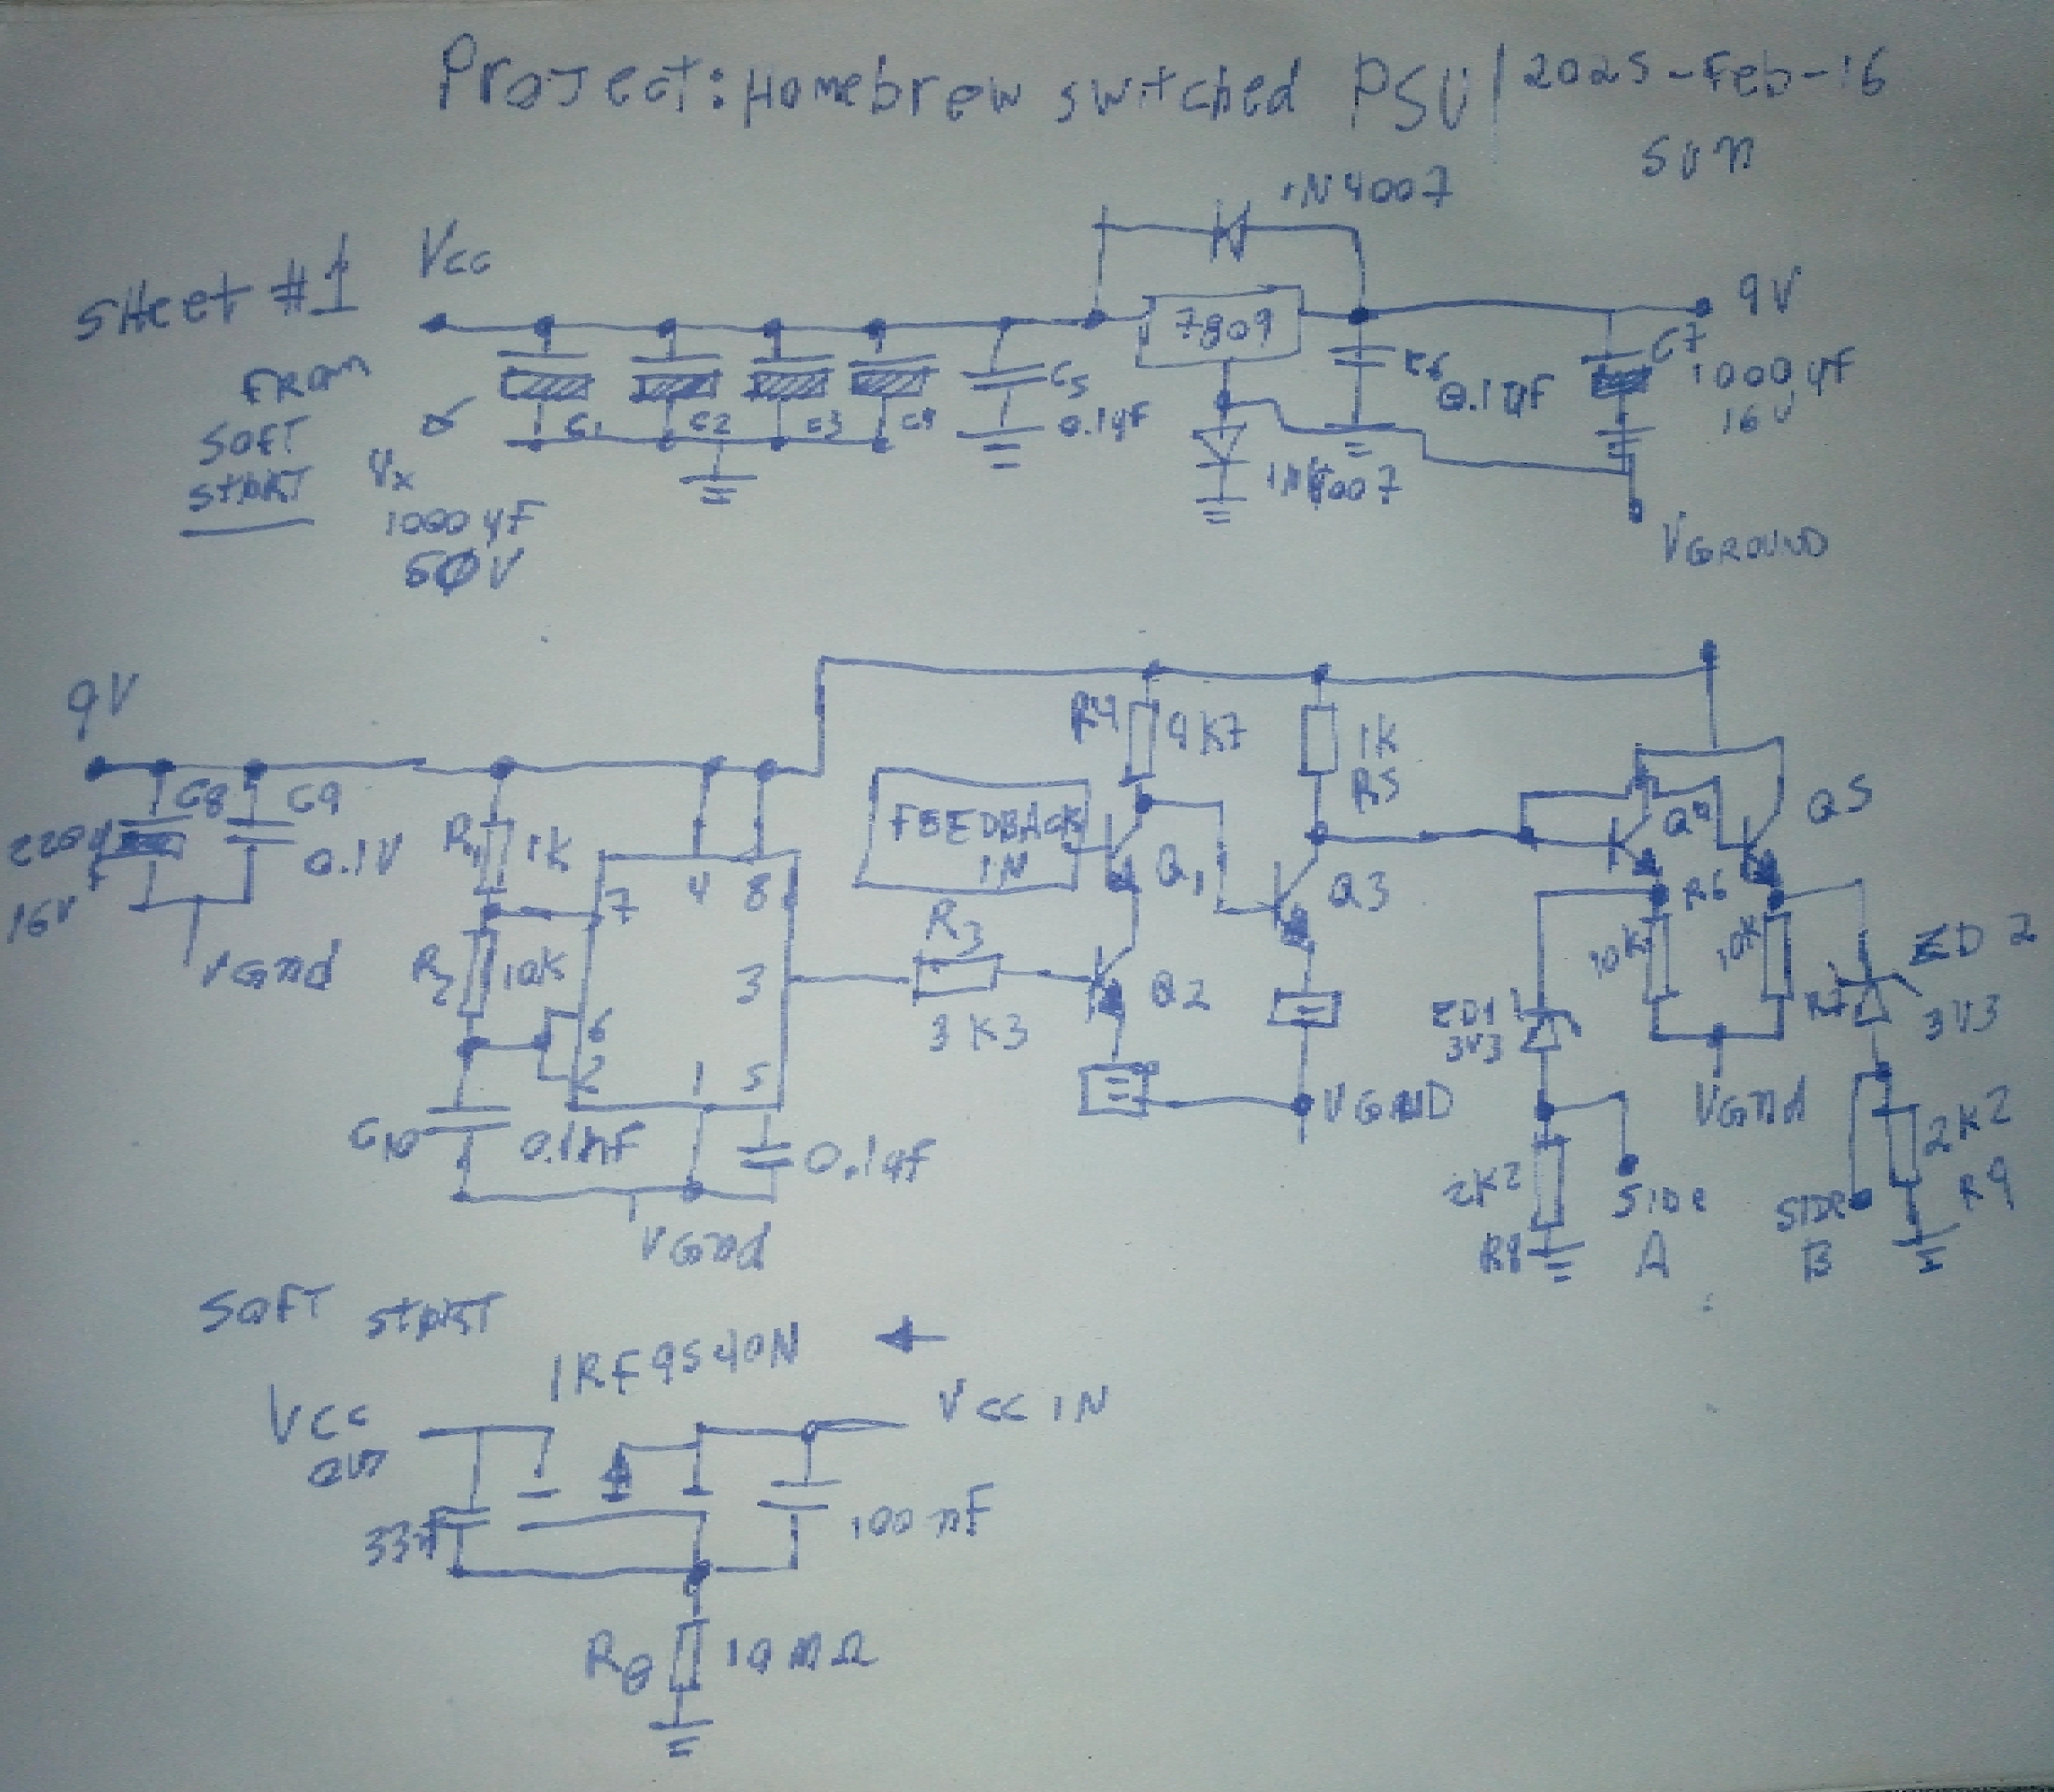 Project: Homebrew switched PSU | 2025-Feb-16
SUN
SHeet #1
VCC
1N4007
FROM
SOFT
START
Vx
1000µF
50V
C1
C2
C3
C4
C5
0.1µF
7809
1N4007
C6
0.1µF
9V
C7
1000µF
16V
VGROUND
9V
C8
220µF
16V
C9
0.1V
VGnd
R1
1K
R2
10K
7
4
8
6
2
3
1
5
C10
0.1nF
0.1µF
VGnd
R3
3K3
FEEDBACK
IN
R4
4K7
1K
R5
Q1
Q2
Q3
VGND
Q4
Q5
R6
10K
10K
R7
VGnd
ZD1
3V3
ZD2
3V3
2K2
R8
SIDE
A
SIDE
B
2K2
R9
SOFT START
IRF9540N
VCC
OUT
VCC IN
33nF
100nF
R8
10MΩ